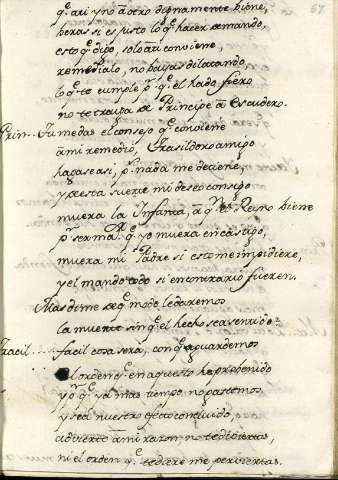 q.e a ti y no a otro dignamente biene,
veras si es justo lo q.e hacer se manda,
esto q.e digo, solo a ti conviene,
remedialo, no bayas dilatando,
lo q.e te cumple p.r q.e el hado fiero
no te traiga de Principe a Escudero.
Prin... Tu me das el consejo q.e conviene
a mi remedio, Trasildoro amigo
hagase asi, p.r nada me detiene,
y pues esta suerte mi deseo consigo
muera la Infanta, a q.n el Reyno biene
p.r ser ma q.e yo muera en castigo,
muera mi Padre si esto me impidiere,
y el mando todo si en contrario fueren.
Mas dime de q.e modo le daremos
la muerte sin q.e el hecho sea sentido:
Tracil... facil cosa sera, con q.e aguardemos
el orden q.e en aquesto he prebenido
y p.r q.e ya mas tiempo no pasemos
y sea nuestro efecto conseguido,
advierte a mi razon, no te diviertas,
ni el orden q.e te diere me perviertas.